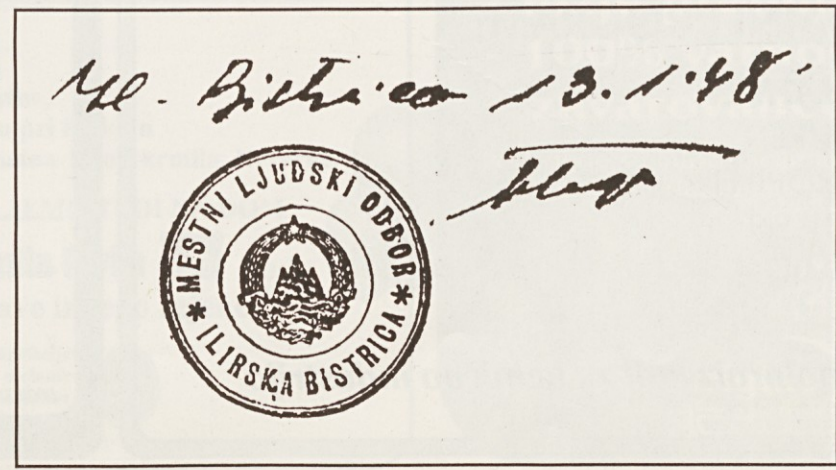 Il. Bistrica 13.1.48.
* MESTNI LJUDSKI ODBOR *
ILIRSKA BISTRICA